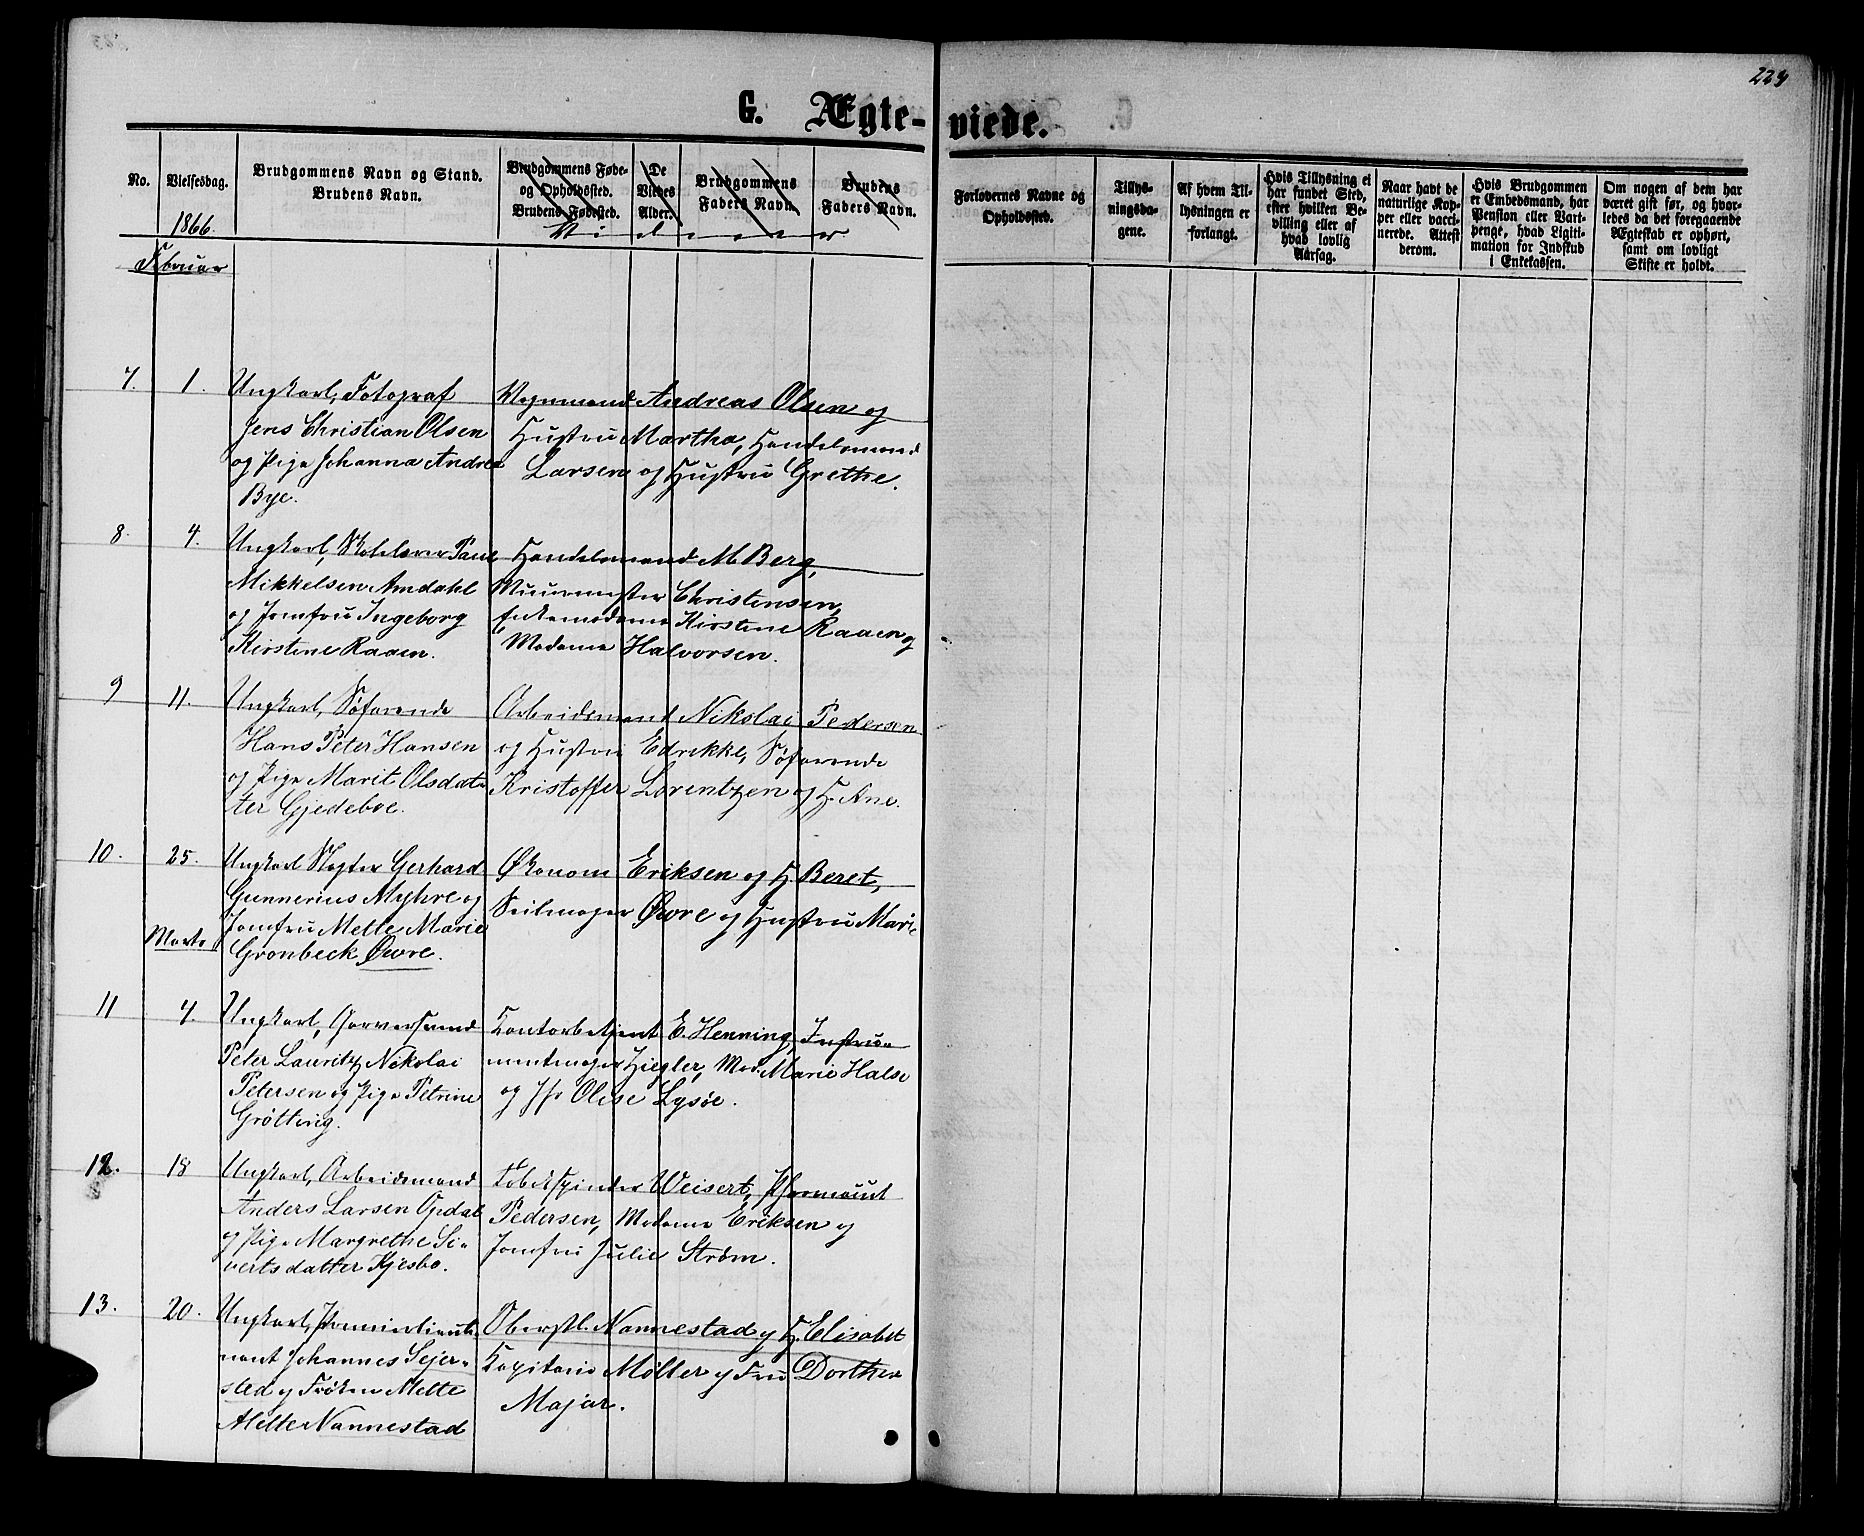 224
G. Ægte-
viede.
No.
Vielsesdag.
Brudgommens Navn og Stand.
Brudens Navn.
Brudgommens Føde-
og Opholdssted.
Brudens Fødested.
De
Viedes
Alder.
Brudgommens
Faders Navn.
Brudens
Faders Navn.
Forlovernes Navne og
Opholdssted.
Tillys-
ningsda-
gene.
Af hvem Til-
lysningen er
forlangt.
Hvis Tillysning ei
har fundet Sted,
efter hvilken Be-
villing eller af
hvad lovlig
Aarsag.
Naar havt de
naturlige Kop-
per eller vacci-
nerede. Attest
derom.
Hvis Brudgommen
er Embedsmand, har
Pension eller Vart-
penge, hvad Ligiti-
mation for Indskud
i Enkekassen.
Om nogen af dem har
været gift før, og hvor-
ledes da det foregaaende
Ægteskab er ophørt,
samt om lovligt
Skifte er holdt.
1866.
Vidner
Februar
7. 1. Ungkarl, Fotograf
Jens Christian Olsen
og Pige Johanna Andrea
Bye.
Vognmand Andreas Olsen og
Hustru Martha, Handelsmand
Larsen og Hustru Grethe.
8. 4. Ungkarl, Skolelærer Paul
Mikkelsen Amdahl
og Jomfru Ingeborg
Kirstine Raaen.
Handelsmand M Berg,
Muurmester Christensen,
Enkemadame Kirstine Raaen og
Madame Halvorsen.
9 11. Ungkarl, Søfarende
Hans Peter Hansen
og Pige Marit Olsdat-
ter Gjedeboe.
Arbeidsmand Nikolai Pedersen
og Hustru Edrikke, Søfarende
Kristoffer Lorentzen og H. Ane.
10. 25. Ungkarl Slagter Gerhard
Gunnerius Myhre og
Jomfru Melle Marie
Grønbeck Øvre.
Økonom Eriksen og H. Beret,
Seilmager Øvre og Hustru Marie
Marts
11 4. Ungkarl, Garversvend
Peter Lauritz Nikolai
Petersen og Pige Petrine
Grøtting.
Kontorbetjent E. Henning, Instru-
mentmager Ziegler, Mad. Marie Halse
og Jfr Olise Lysøe.
12. 18 Ungkarl, Arbeidsmand
Anders Larsen Opdal
og Pige Margrethe Si-
vertsdatter Kjesbo.
Tobakspinder Weisert,
Pedersen, Madame Eriksen og
Jomfru Julie Strøm.
13. 20. Ungkarl, Premierlieute-
nant Johannes Sejer-
sted og Frøken Melte
Alette Nannestad
Oberstl. Nannestad og H. Elisabet
Kapitain Møller og Fru Dorthea
Major.